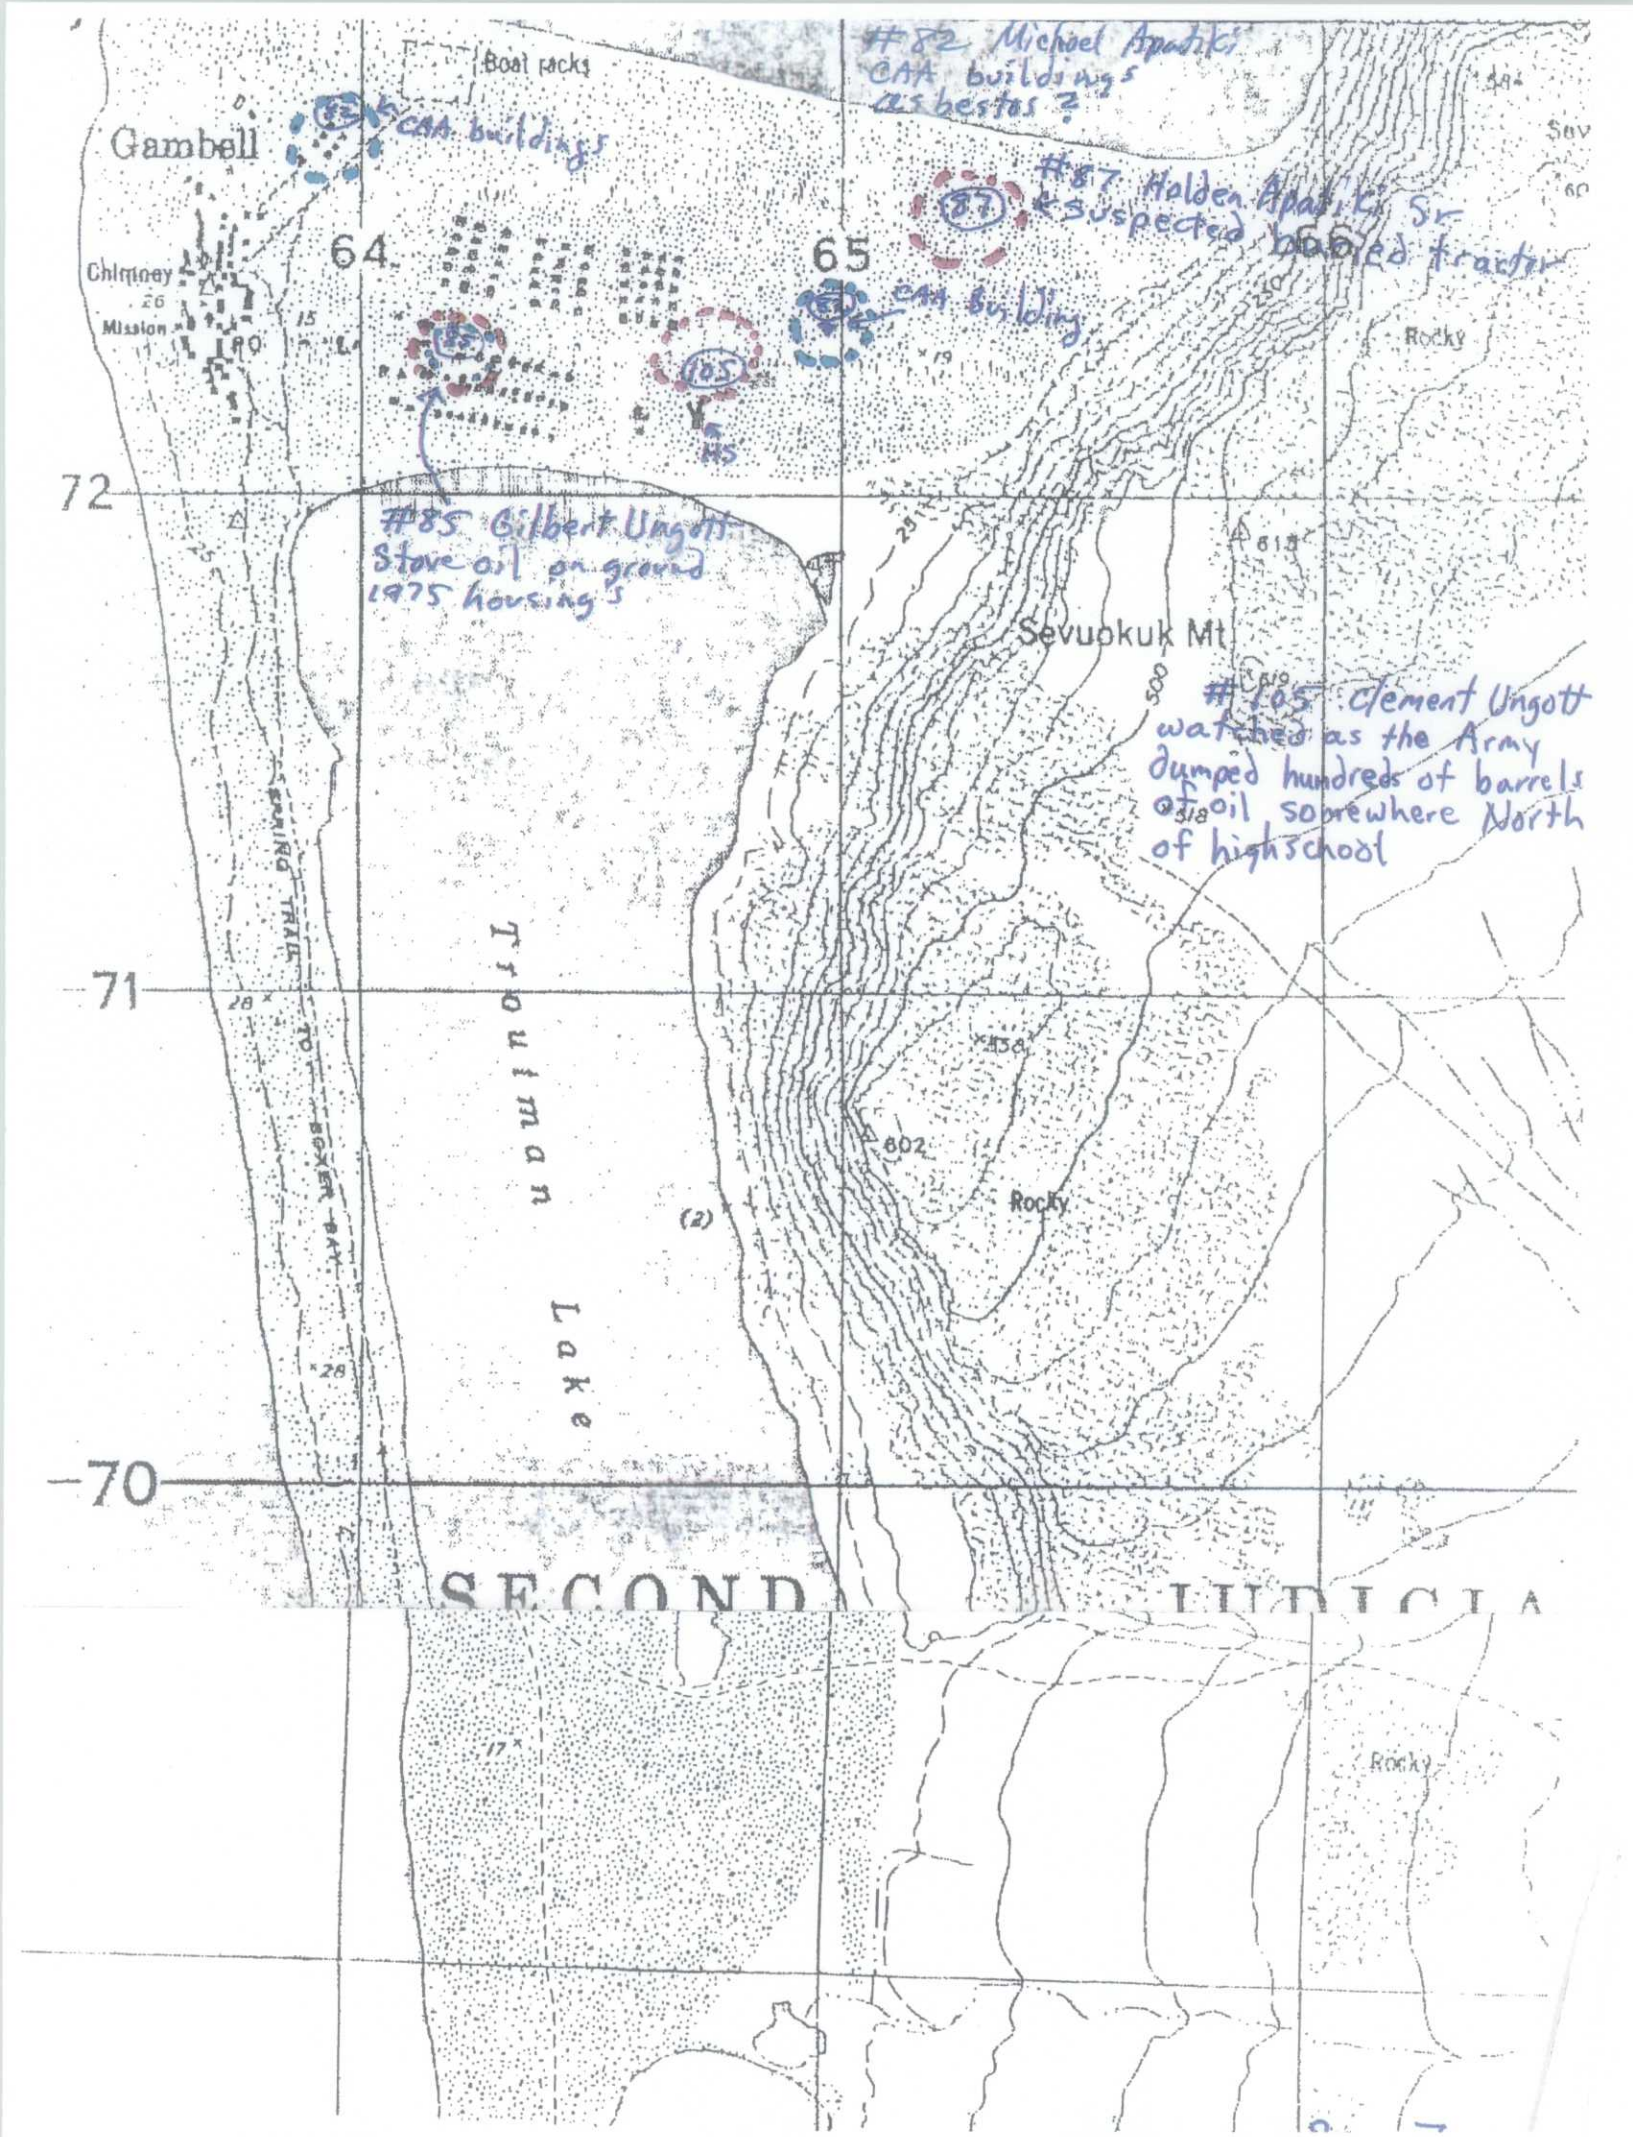 # 82 Michael Apatiki
CAA buildings
asbestos ?
Boat racks
82
CAA buildings
Gambell
# 87 Holden Apatiki Sr
suspected buried tractor
87
64
65
66
Chimney
26
Mission
PO
15
CAA Building
250
Rocky
85
105
x19
HS
72
25
#85 Gilbert Ungott
Stove oil on ground
1975 housing's
615
Sevuokuk Mt
500
619
# 105 Clement Ungott
watched as the Army
dumped hundreds of barrels
of oil somewhere North
of highschool
518
SPRING TRAIL TO BOXER BAY
Troutman Lake
71
28 x
x558
602
(2)
Rocky
x28
70
SECOND JUDICIA
17 x
Rocky